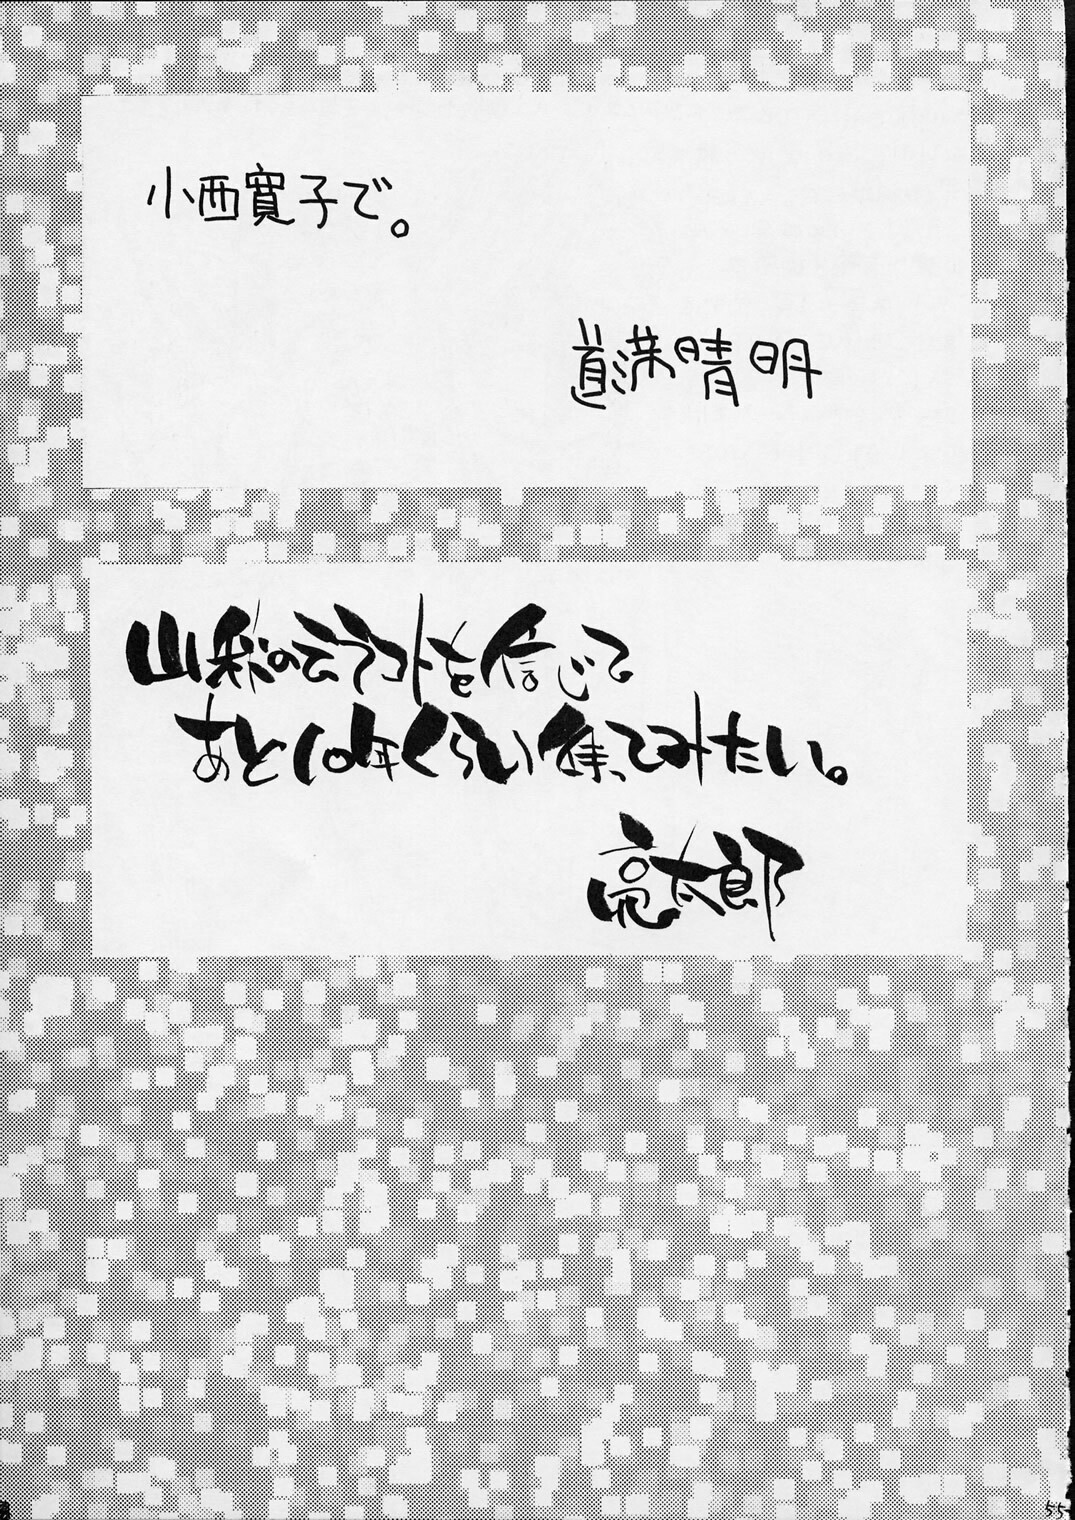 小西寛子で。
道満晴明
山彩のミラコトを信じて
あと10年くらい待ってみたい。
亮太郎
55